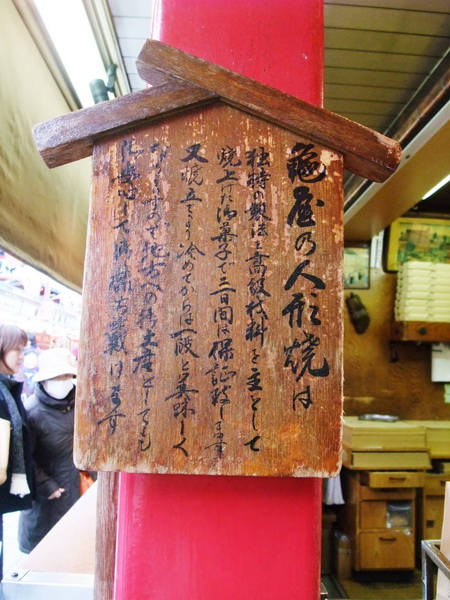 亀屋の人形焼は
独特の製法と高級材料を主として
焼上げた御菓子で三日間は保証致します
又焼立てより冷めてからは一段と美味しく
なりますので地方への御土産としても
御安心してお持ち戴けます